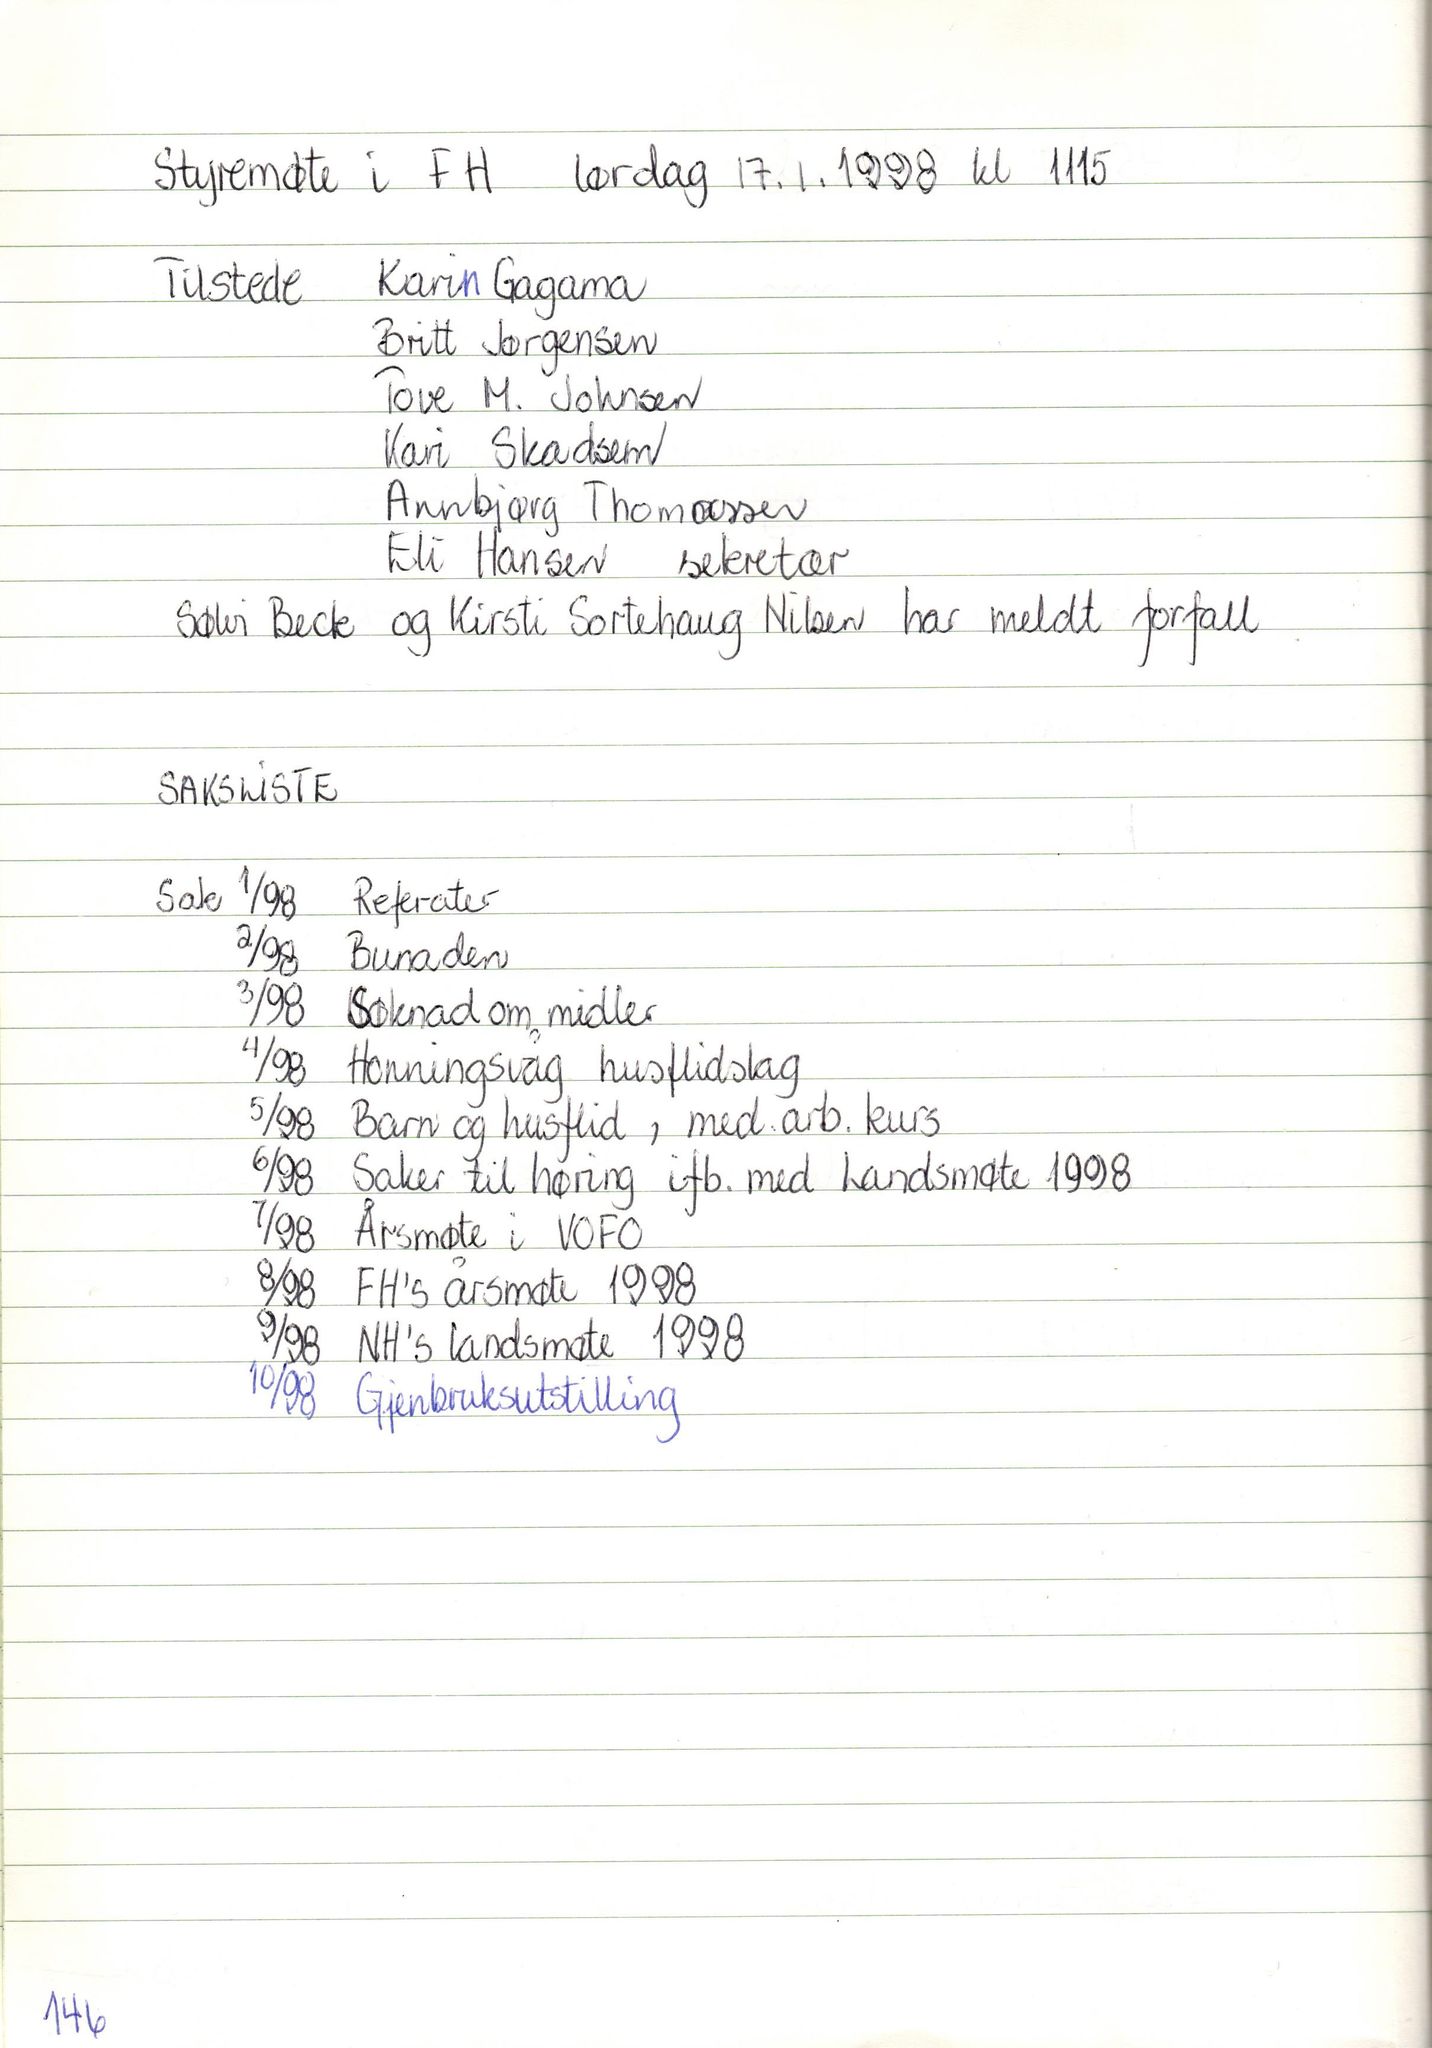 Styremøte i FH lørdag 17.1.1998 kl 1115
Tilstede Karin Gagama
Britt Jørgensen
Tove M. Johnsen
Kari Skadsem
Annbjørg Thomassen
Eli Hansen sekretær
Sølvi Beck og Kirsti Sortehaug Nilsen har meldt forfall
SAKSLISTE
Sak 1/98 Referater
2/98 Bunaden
3/98 Søknad om midler
4/98 Honningsvåg husflidslag
5/98 Barn og husflid, med.arb. kurs
6/98 Saker til høring ifb. med Landsmøte 1998
7/98 Årsmøte i VOFO
8/98 FH's årsmøte 1998
9/98 NH's landsmøte 1998
10/98 Gjenbruksutstilling
146